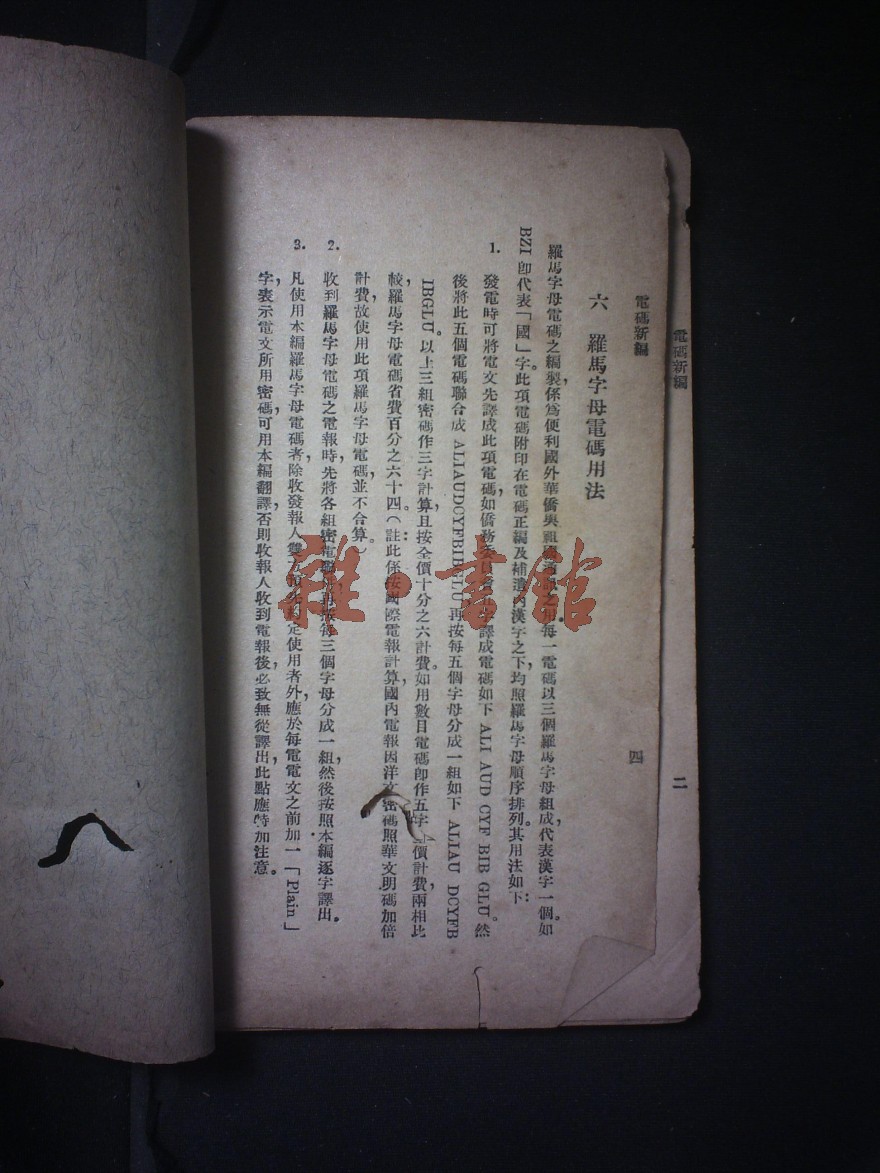 電碼新編
二
電碼新編
四
六 羅馬字母電碼用法
羅馬字母電碼之編製,係為便利國外華僑與祖國通報之用。每一電碼以三個羅馬字母組成,代表漢字一個。如
BZI 卽代表「國」字。此項電碼附印在電碼正編及補遺內漢字之下,均照羅馬字母順序排列。其用法如下:
1. 發電時可將電文先譯成此項電碼,如僑務委員者五字譯成電碼如下 ALI AUD CYF BIB GLU。然
後將此五個電碼聯合成 ALIAUDCYFBIBGLU 再按每五個字母分成一組如下 ALIAU DCYFB
IBGLU。以上三組密碼作三字計算,且按全價十分之六計費。如用數目電碼卽作五字 價計費,兩相比
較,羅馬字母電碼省費百分之六十四。(註:此係按國際電報計算,國內電報因洋文密碼照華文明碼加倍
計費,故使用此項羅馬字母電碼,並不合算。)
2. 收到羅馬字母電碼之電報時,先將各組密電聯 再按每三個字母分成一組,然後按照本編逐字譯出。
3. 凡使用本編羅馬字母電碼者,除收發報人雙方預先約定使用者外,應於每電電文之前加一「Plain」
字,表示電文所用密碼,可用本編翻譯,否則收報人收到電報後,必致無從譯出,此點應特加注意。
雅·書館